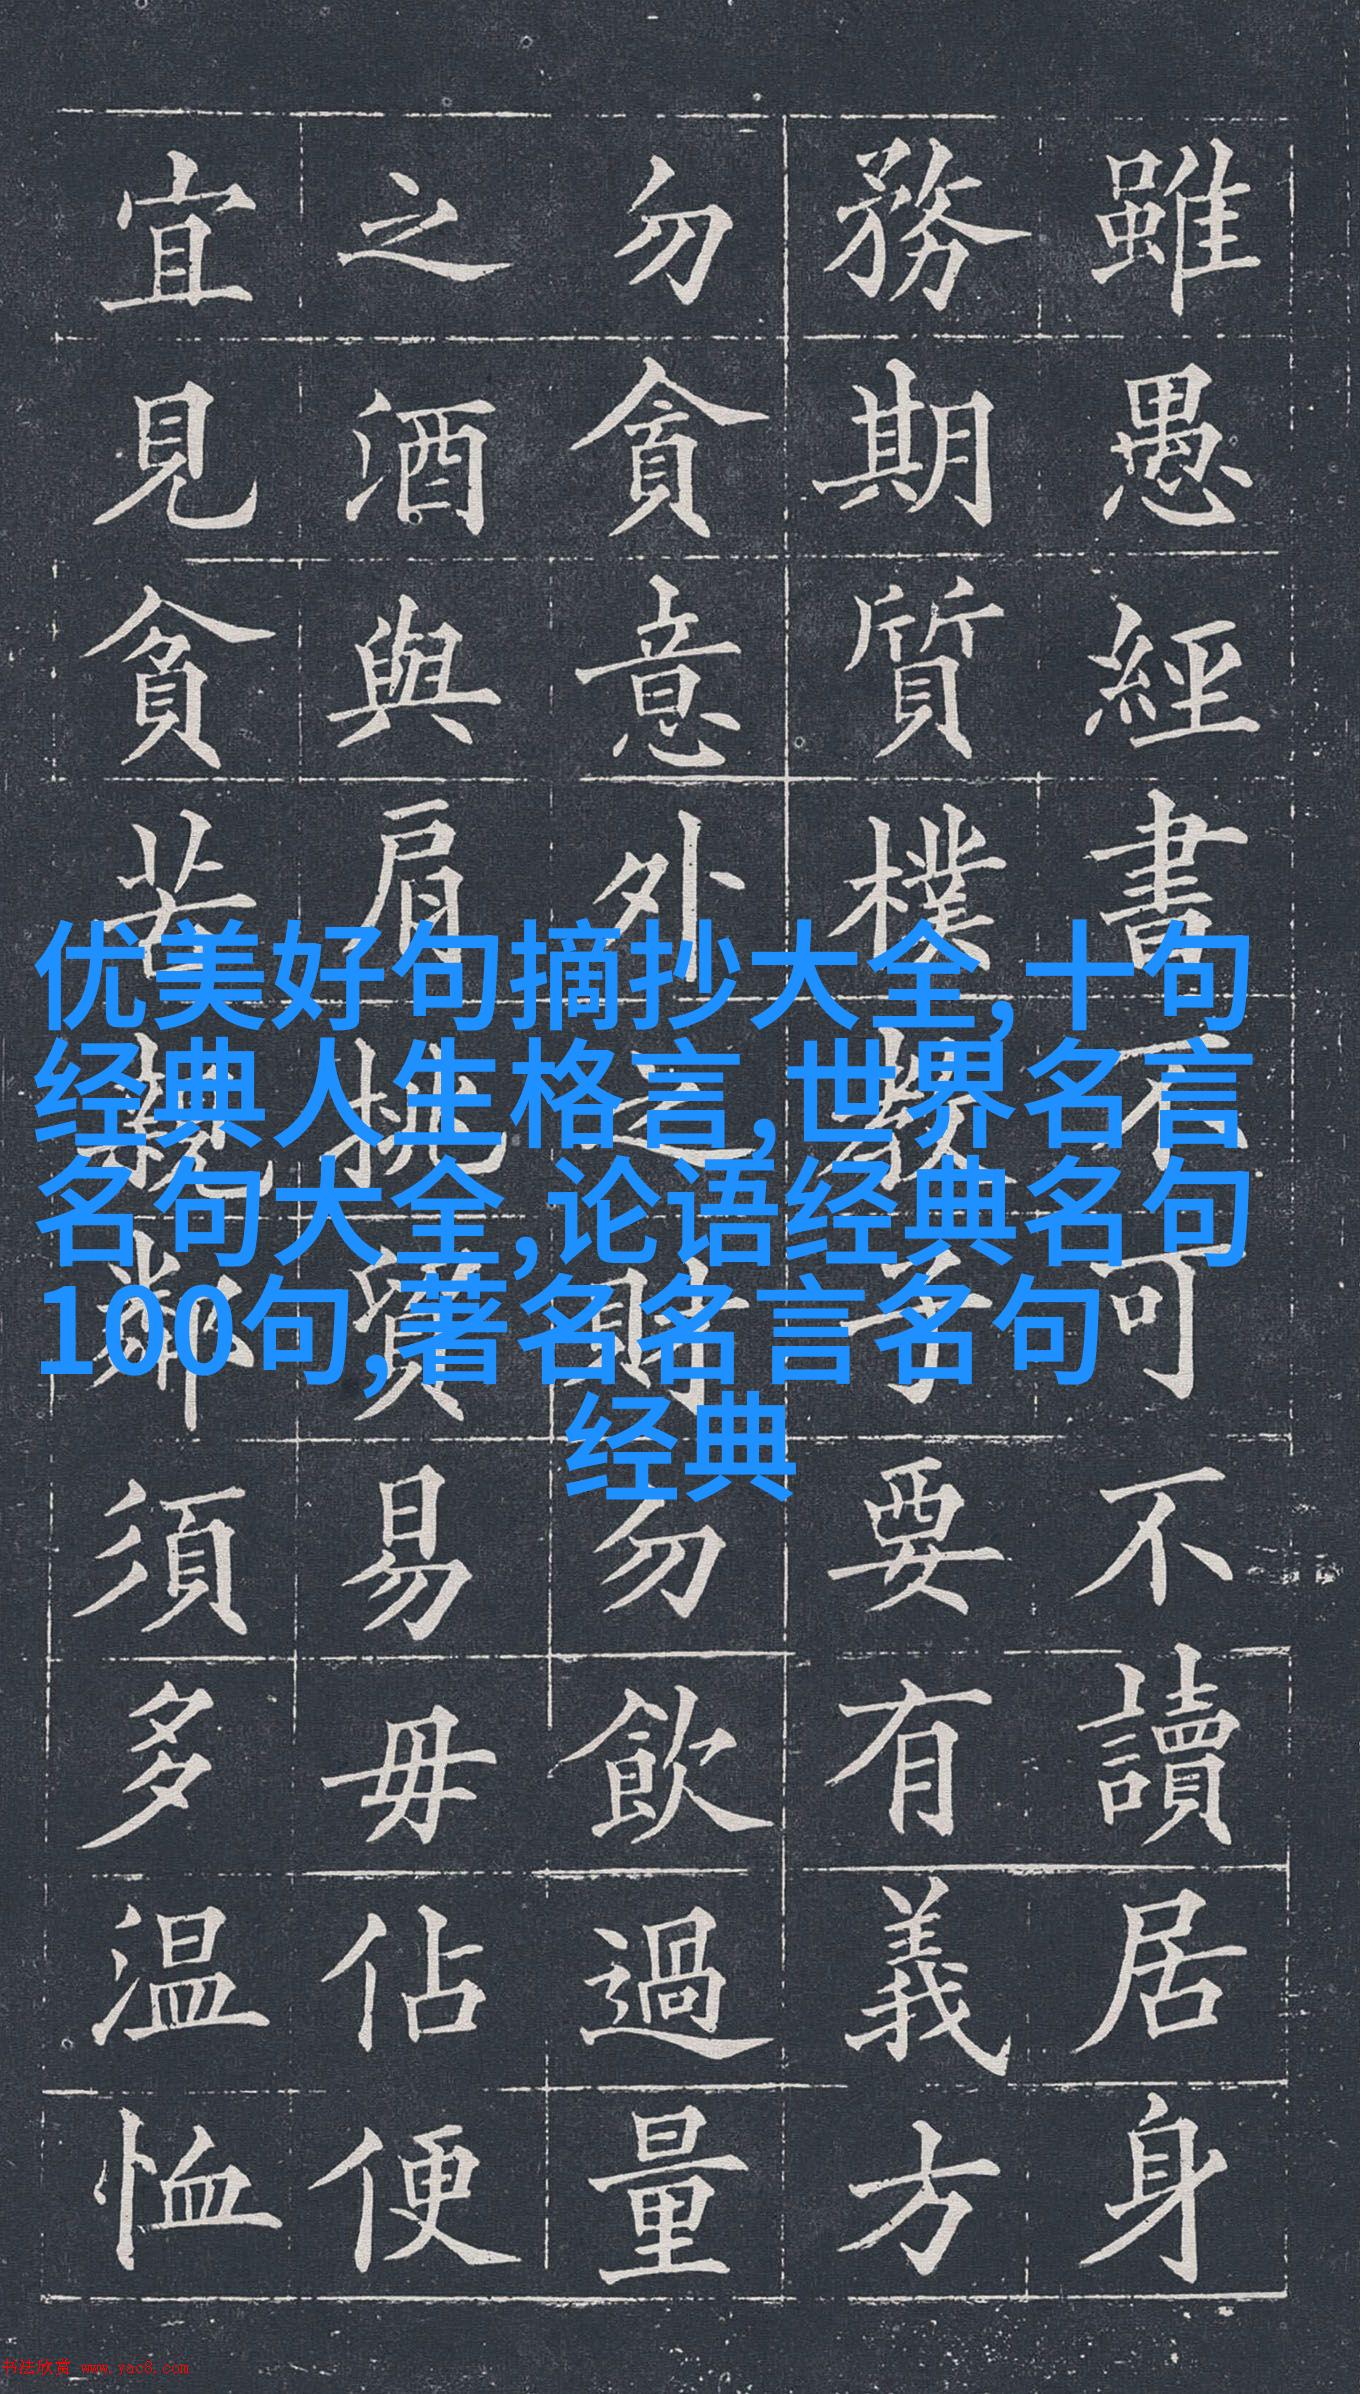 雖愚經書不可不讀居身
務期質樸教子要有義方
勿貪意外之財勿飲過量
之酒與肩挑貿易毋佔便
宜見貧苦親鄰須多温恤
优美好句摘抄大全,十句
经典人生格言,世界名言
名句大全,论语经典名句
100句,著名名言名句
经典
书法欣赏 www.yac8.com